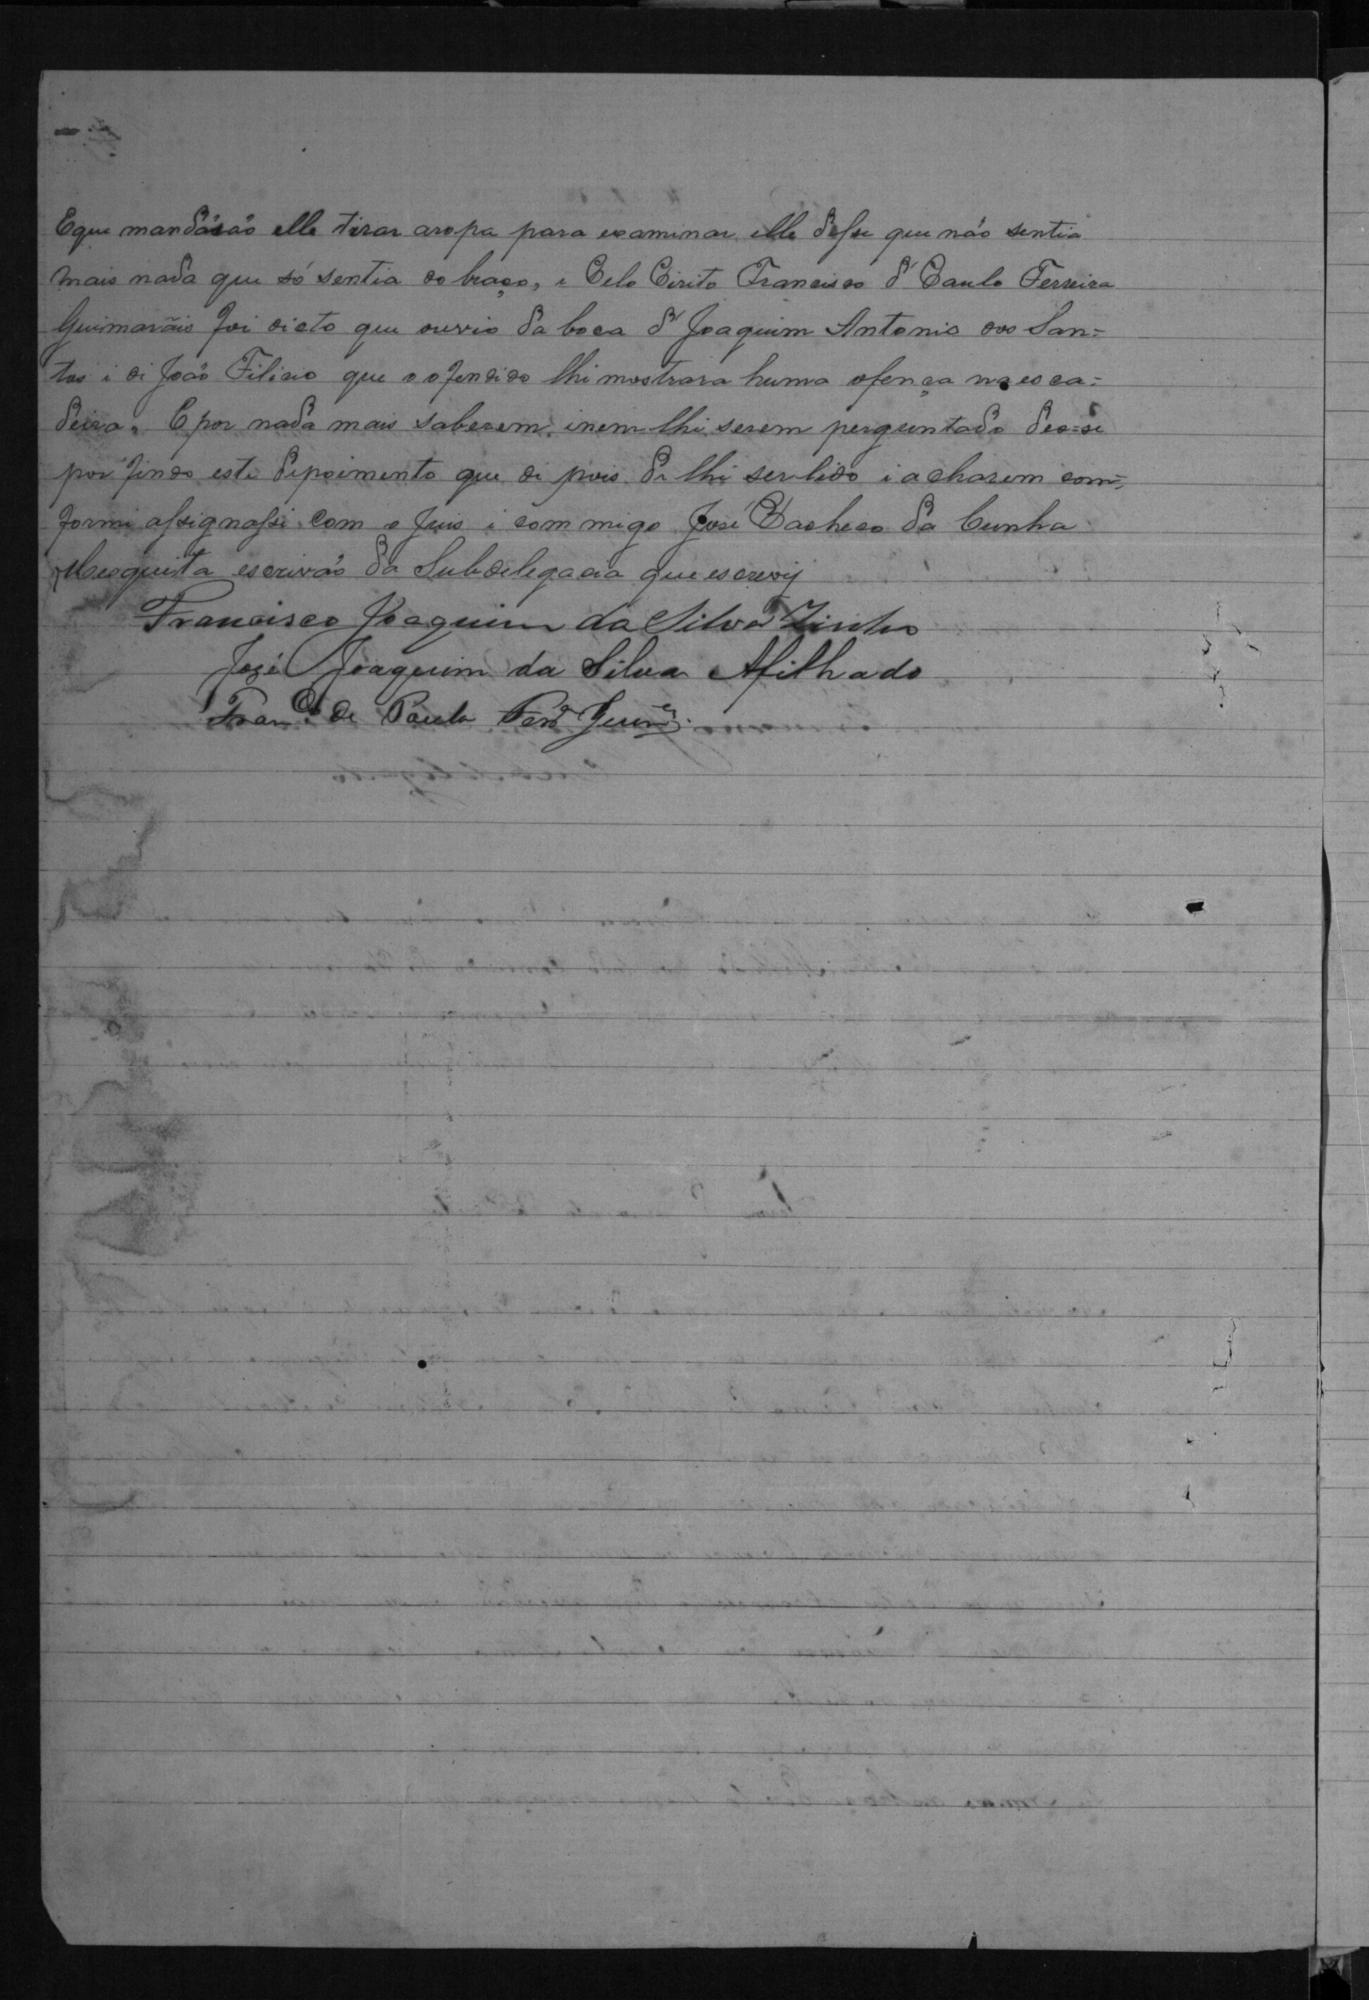 Eque mandárão elle tirar aropa para examinar elle disse que não sentia
mais nada que só sentia do braço, e Pelo Pirito Francisco d' Paulo Ferreira
Guimarãis foi dicto que ouvio da boca d' Joaquim Antonio dos San=
tos i di João Filicio que o ofendido lhi mostrara huma ofença na esca=
deira. E por nada mais saberem inem lhi serem perguntado deo-se
por findo este dipoimento que di pois di lhi ser lido i acharem com=
formi assignassi com o Juis i com migo José Pacheco da Cunha
Mesquita escrivão da Subdelegacia que escrevij
Francisco Joaquim da Silva
José Joaquim da Silva Afilhado
Fran.co de Paula Ferr.a Guim.es